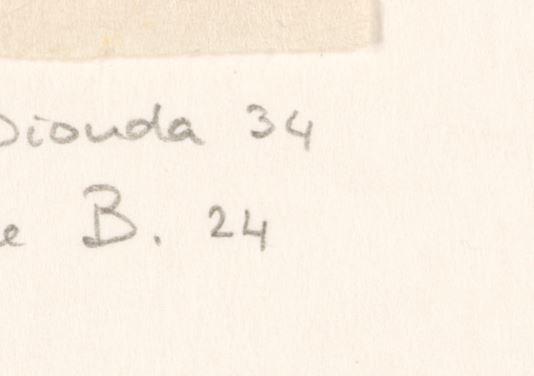 Dionda 34
e B. 24